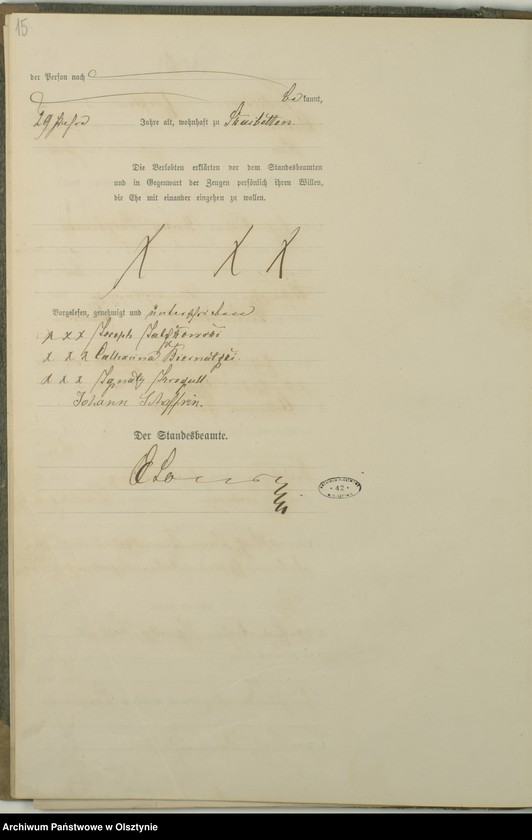 15
der Person nach
be kannt,
29 Jahre Jahre alt, wohnhaft zu
Die Verlobten erklärten vor dem Standesbeamten
und in Gegenwart der Zeugen persönlich ihren Willen,
die Ehe mit einander eingehen zu wollen.
Vorgelesen, genehmigt und unterschrieben
x x x Joseph
x x x Catharina
x x x Ignatz
Johann
Der Standesbeamte.
42
Archiwum Państwowe w Olsztynie